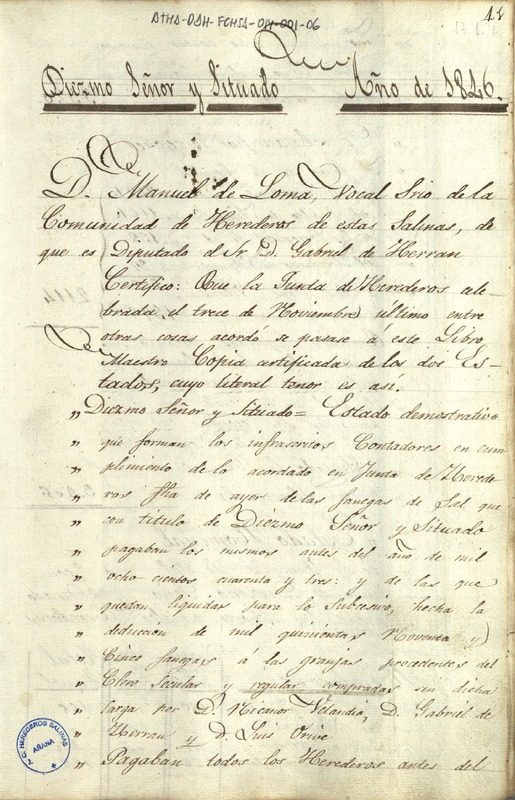 ATHA-DAH-FCHSA-014-001-06
Diezmo Señor y Situado Año de 1846.
D. Manuel de Loma, Vocal Srio de la
Comunidad de Herederos de estas Salinas, de
que es Diputado el Sr. D. Gabriel de Herran
Certifico: Que la Junta de Herederos cele-
brada el trece de Noviembre último entre
otras cosas acordó se pasase á este Libro
Maestro Copia certificada de los dos Es-
tados, cuyo literal tenor es así.
„ Diezmo Señor y Situado = Estado demostrativo
„ que forman los infrascritos Contadores en cum
„ plimiento de lo acordado en Junta de Herede
„ ros fha de ayer de las fanegas de Sal que
„ con título de Diezmo Señor y Situado
„ pagaban los mismos antes del año de mil
„ ocho cientos cuarenta y tres: y de las que
„ quedan liquidas para lo Subcesivo, hecha la
„ deducción de mil quinientas Noventa y
„ Cinco fanegas á las granjas procedentes del
„ Clero Secular y regular compradas sin dicha
„ carga por D. Nicanor Velandia, D. Gabriel de
„ Herran y D. Luis Orive
„ Pagaban todos los Herederos antes del
C. HEREDEROS SALINAS
AÑANA